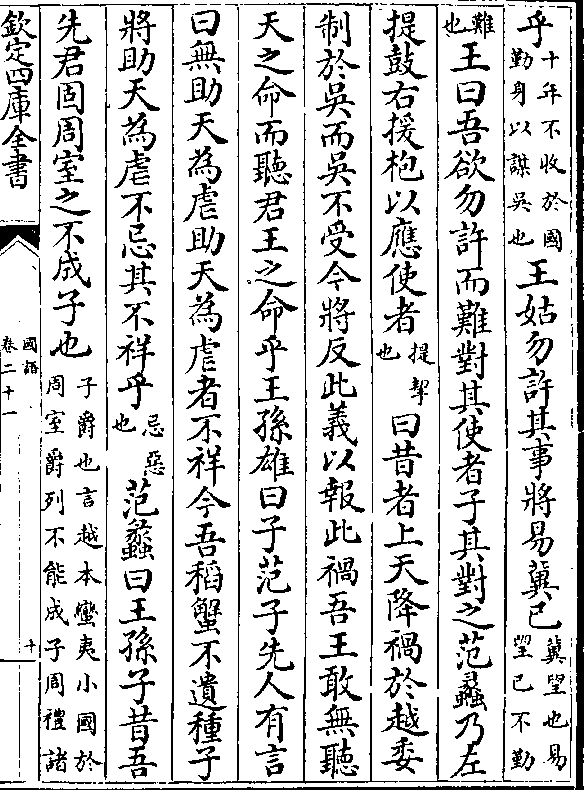 乎十年不收於國勤身以謀吳也王姑勿許其事將易冀已冀望也易望已不勤
難也王曰吾欲勿許而難對其使者子其對之范蠡乃左
提鼓右援枹以應使者提挈也曰昔者上天降禍於越委
制於吳而吳不受今將反此義以報此禍吾王敢無聽
天之命而聽君王之命乎王孫雄曰子范子先人有言
曰無助天為虐助天為虐者不祥今吾稻蟹不遺種子
將助天為虐不忌其不祥乎忌惡也范蠡曰王孫子昔吾
先君固周室之不成子也子爵也言越本蠻夷小國於周室爵列不能成子周禮諸
欽定四庫全書
國語
卷二十一
十